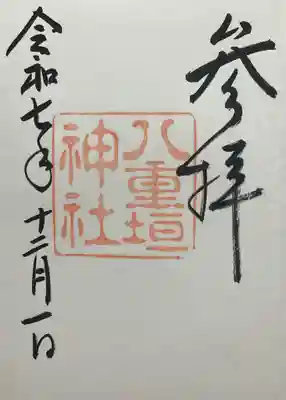 参拝
八重垣
神社
令和七年十二月一日